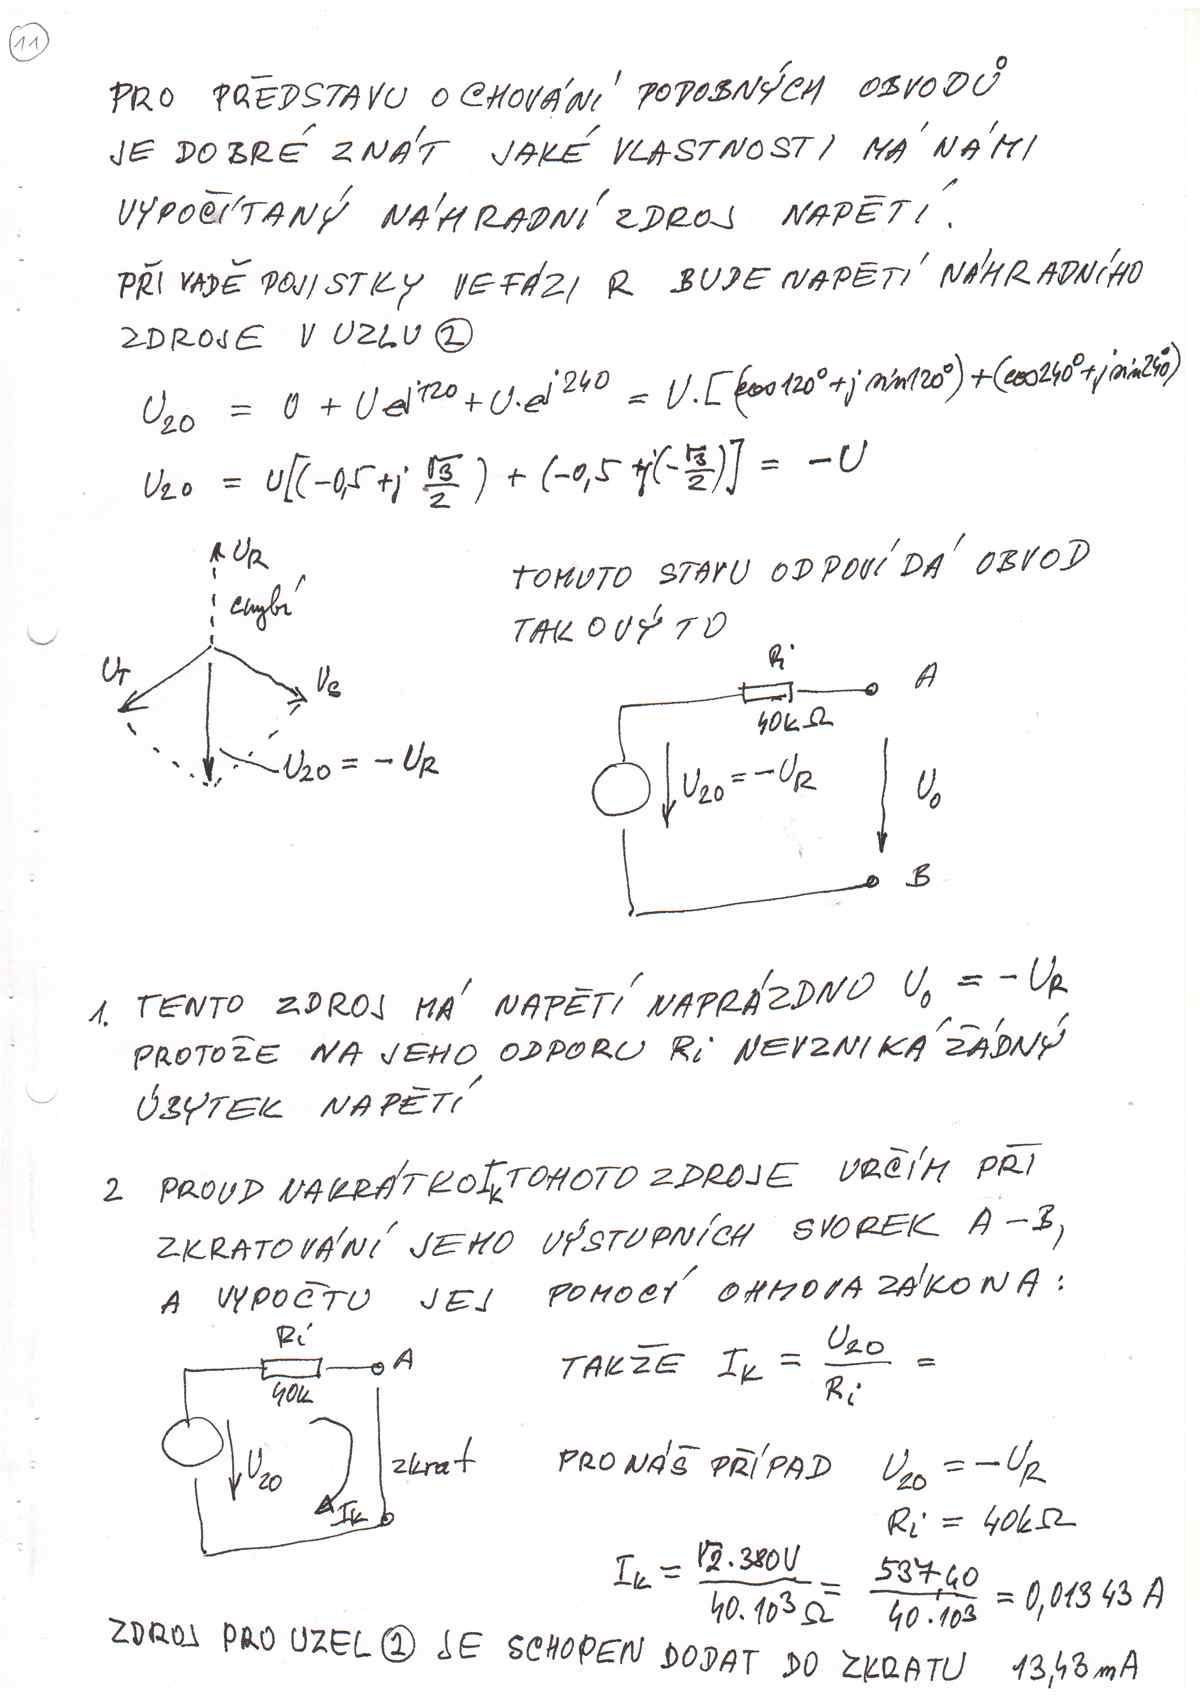 11
PRO PŘEDSTAVU O CHOVÁNÍ PODOBNÝCH OBVODŮ
JE DOBRÉ ZNÁT JAKÉ VLASTNOSTI MÁ NÁMI
VYPOČÍTANÝ NÁHRADNÍ ZDROJ NAPĚTÍ.
PŘI VADĚ POJISTKY VE FÁZI R BUDE NAPĚTÍ NÁHRADNÍHO
ZDROJE V UZLU ②
U₂₀ = 0 + U e^j120 + U·e^j240 = U·[(cos120°+j sin120°)+(cos240°+j sin240°)
U₂₀ = U[(-0,5+j √3/2) + (-0,5+j(-√3/2)] = -U
U_R
chybí
U_T
U_S
U₂₀ = -U_R
TOMUTO STAVU ODPOVÍDÁ OBVOD
TAKOVÝTO
Ri
A
40kΩ
U₂₀ = -U_R
U₀
B
1. TENTO ZDROJ MÁ NAPĚTÍ NAPRÁZDNO U₀ = -U_R
PROTOŽE NA JEHO ODPORU Ri NEVZNIKÁ ŽÁDNÝ
ÚBYTEK NAPĚTÍ
2 PROUD NAKRÁTKO I_K TOHOTO ZDROJE URČÍM PŘI
ZKRATOVÁNÍ JEHO VÝSTUPNÍCH SVOREK A-B,
A VYPOČTU JEJ POMOCÝ OHMOVA ZÁKONA:
Ri
A
40k
U₂₀
zkrat
I_K
TAKŽE I_K = U₂₀/Ri =
PRO NÁŠ PŘÍPAD U₂₀ = -U_R
Ri = 40kΩ
I_K = √2·380V/40·10³Ω = 537,40/40·10³ = 0,01343 A
ZDROJ PRO UZEL ② JE SCHOPEN DODAT DO ZKRATU 13,43mA